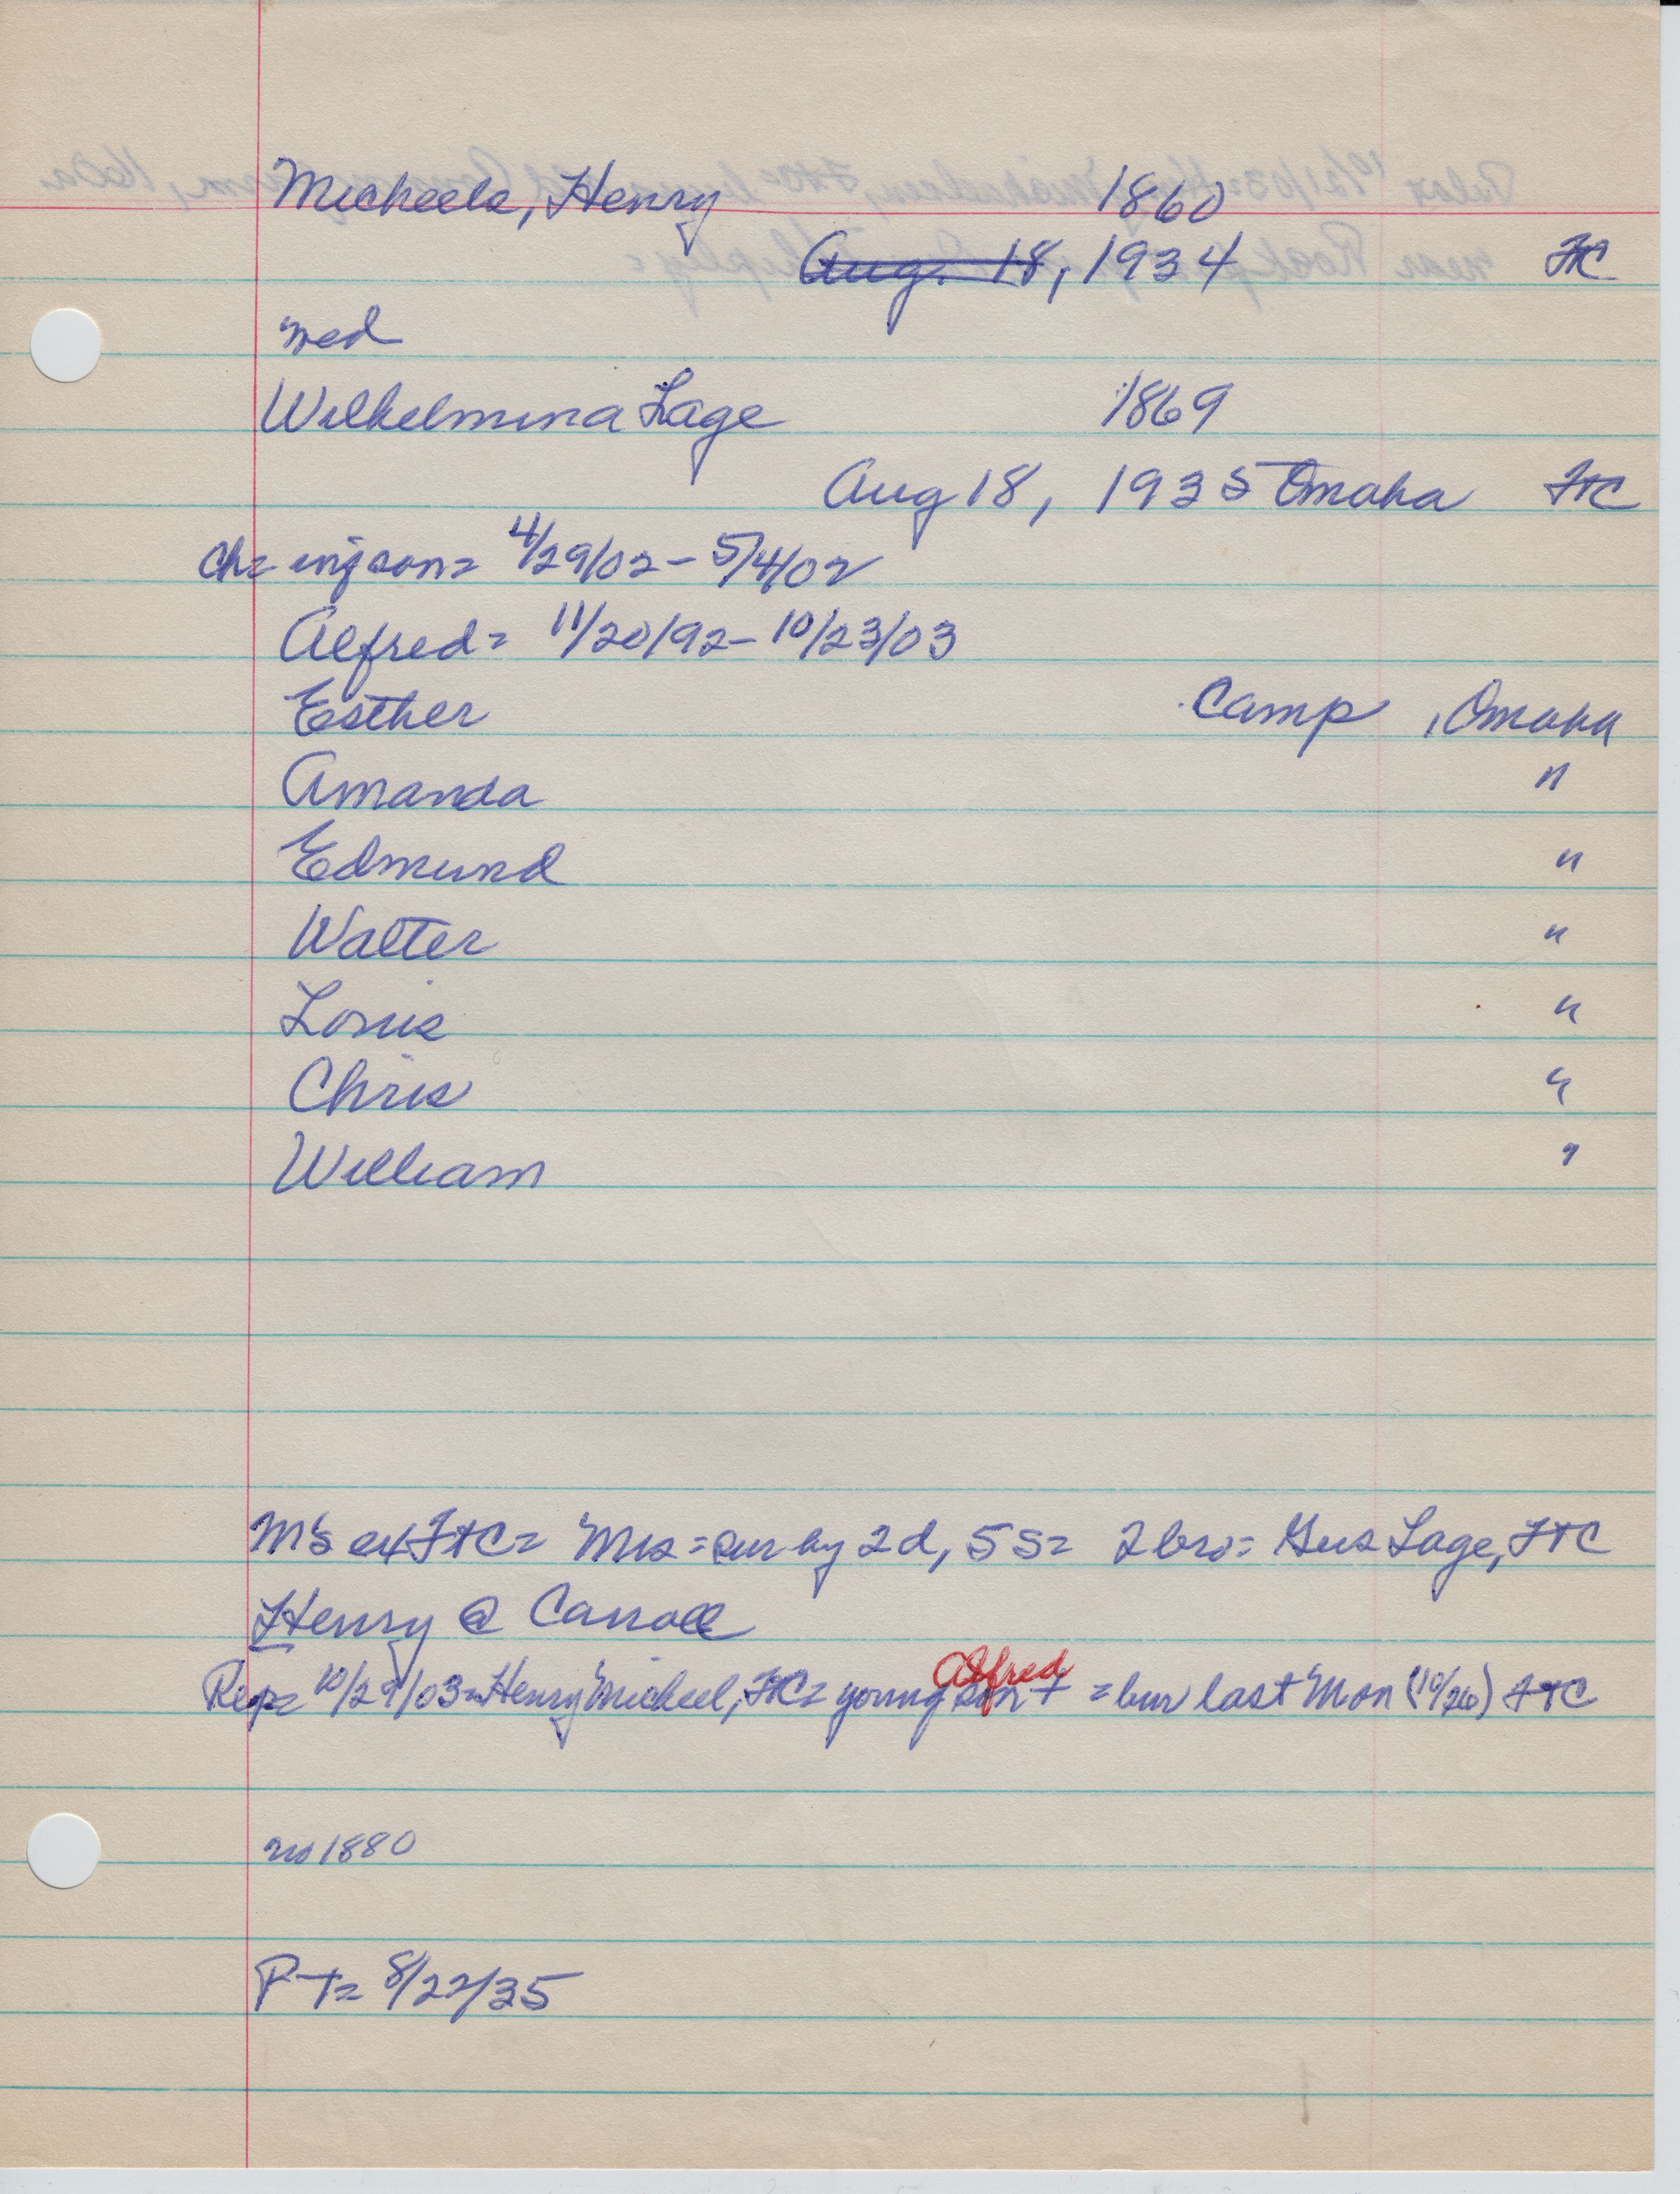 Micheels, Henry 1860
Aug. 18, 1934 FtC
wed
Wilhelmina Lage 1869
Aug 18, 1935 Omaha FtC
Ch= inf son= 4/29/02 - 5/4/02
Alfred= 11/20/92 - 10/23/03
Esther Camp , Omaha
Amanda "
Edmund "
Walter "
Louis "
Chris "
William "
M's ex FtC= Mrs = sur by 2d, 5s= 2 bro= Gus Lage, FtC
Henry @ Carroll
Alfred
Rep= 10/29/03= Henry Micheel, FtC= young son + = bur last Mon (10/26) FtC
no 1880
P-T= 8/22/35